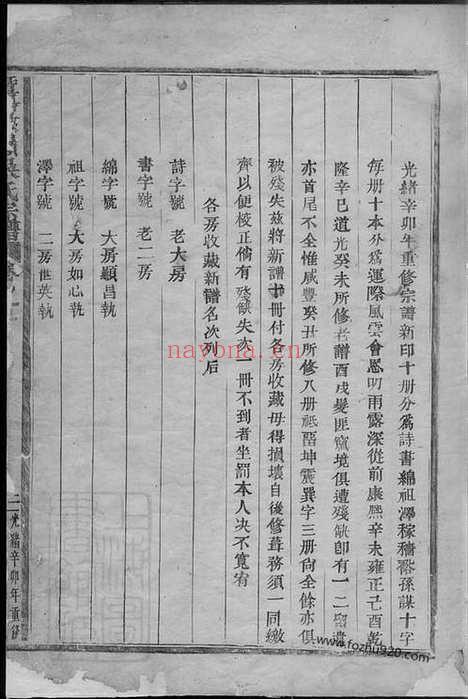 光緒辛卯年重修宗譜新印十册分爲詩書綿祖澤稼穡裕孫謀十字
每册十本分爲運際風雲會恩叨雨露深從前康熙辛未雍正己酉乾
隆辛巳道光癸未所修老譜酉戌變匪竄境俱遭殘缺卽有一二留遺
亦首尾不全惟咸豐癸丑所修八册祗畱坤震巽字三册向全餘亦俱
被殘失兹將新譜十冊付各房收藏毋得損壞自後修葺務須一同繳
齊以便校正倘有殘缺失次一冊不到者坐罰本人决不寬宥
各房收藏新譜名次列后
詩字號 老大房
書字號 老二房
綿字號 大房顯昌執
祖字號 大房如心執
澤字號 二房世英執
氏宗譜 卷
二 光緒辛卯年重修
nayona.cn
www.fozhu920.com